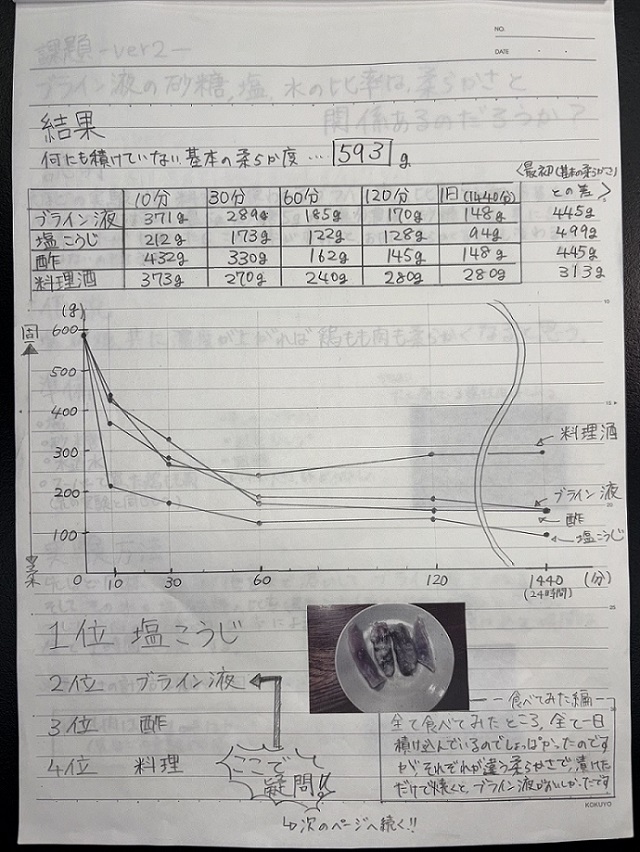 NO.
DATE
課題 -ver2-
ブライン液の砂糖,塩,水の比率は,柔らかさと
関係あるのだろうか?
結果
何にも積けていない基本の柔らか度…593g
<最初(基本の柔らかさ)との差>
10分 30分 60分 120分 1日(1440分)
ブライン液 371g 289g 185g 170g 148g 445g
塩こうじ 212g 173g 122g 128g 94g 499g
酢 432g 330g 162g 145g 148g 445g
料理酒 373g 270g 240g 280g 280g 313g
(g)
固
600
500
400
300
200
100
柔
料理酒
ブライン液
酢
塩こうじ
0 10 30 60 120 1440 (分)
(24時間)
1位 塩こうじ
2位 ブライン液
3位 酢
4位 料理
ここで
疑問!!
↳次のページへ続く!!
食べてみた編
全て食べてみたところ,全て一日
積け込んでいるのでしょっぱかったのです
が,それぞれが違う柔らかさで,漬けた
だけで焼くと,ブライン液がおいしかったです
KOKUYO